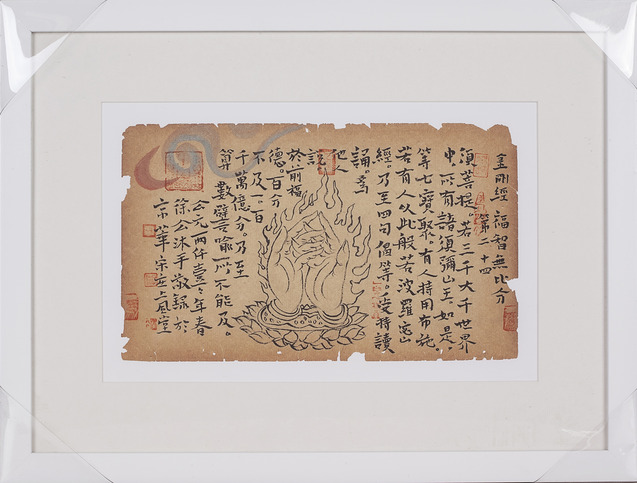 金剛經 福智無比分
第二十四
須菩提。若三千大千世界
中。所有諸須彌山王。如是。
等七寶聚。有人持用布施。
若有人以此般若波羅密
經。乃至四句偈等。受持讀
誦。為
他人
說
於前福
德。百分
不及一百
千萬億分。乃至
算數譬喻所不能及。
公元两仟壹年春
徐公沐手敬録於
京華宗上風堂